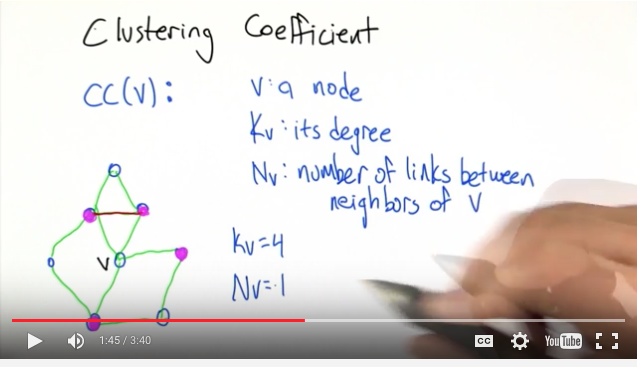 Clustering Coefficient
CC(V):
V: a node
Kv: its degree
Nv: number of links between
neighbors of V
Kv=4
Nv=1
V
1:45 / 3:40
CC
YouTube